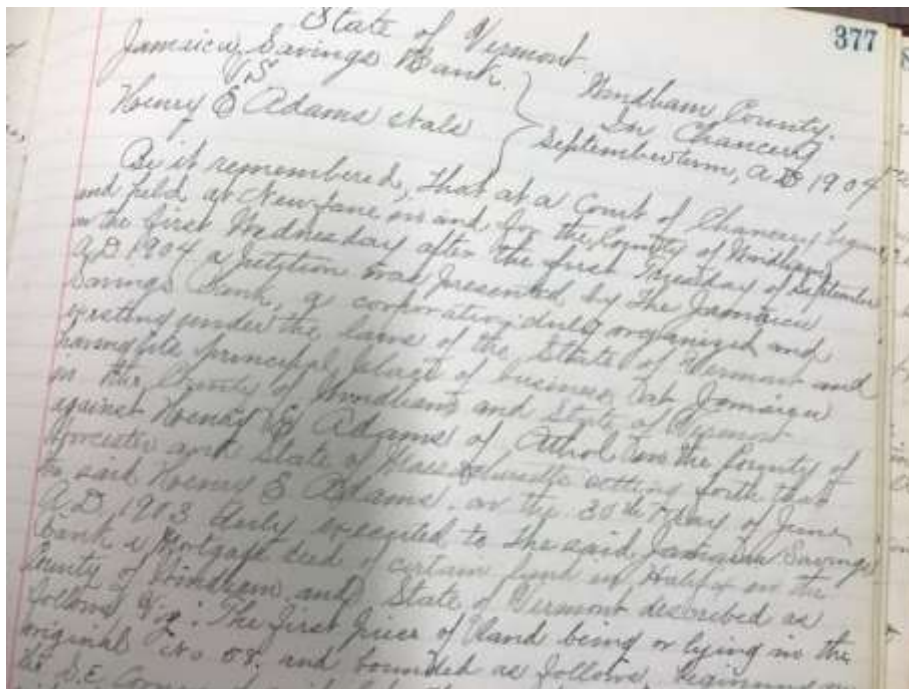 377
State of Vermont.
Jamaica Savings Bank
vs
Henry E Adams et als
Windham County.
In Chancery
September term, A.D. 1904
Be it remembered, that at a Court of Chancery begun
and held at Newfane in and for the County of Windham
on the first Wednesday after the first Tuesday of September
A.D. 1904 a petition was presented by the Jamaica
Savings Bank, a corporation duly organized and
existing under the laws of the State of Vermont and
having its principal place of business at Jamaica
in the County of Windham and State of Vermont
against Henry E Adams of Athol in the County of
Worcester and State of Massachusetts setting forth that
he said Henry E Adams, on the 30th day of June
A.D. 1903 duly executed to the said Jamaica Savings
Bank a Mortgage deed of certain land in Halifax in the
County of Windham and State of Vermont described as
follows Viz: The first piece of land being or lying in the
original No 58. and bounded as follows, beginning
the S.E. Corner